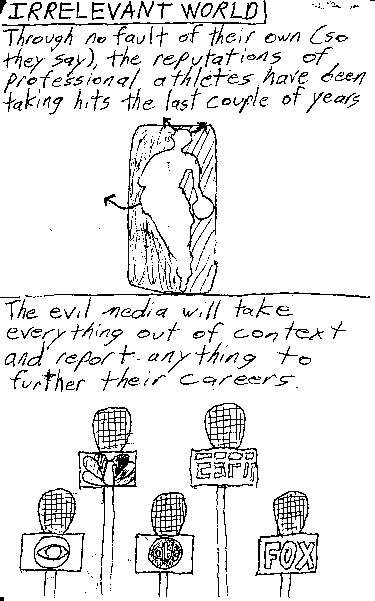 IRRELEVANT WORLD
Through no fault of their own (so
they say), the reputations of
professional athletes have been
taking hits the last couple of years
The evil media will take
everything out of context
and report anything to
further their careers.
ESPN
abc
FOX